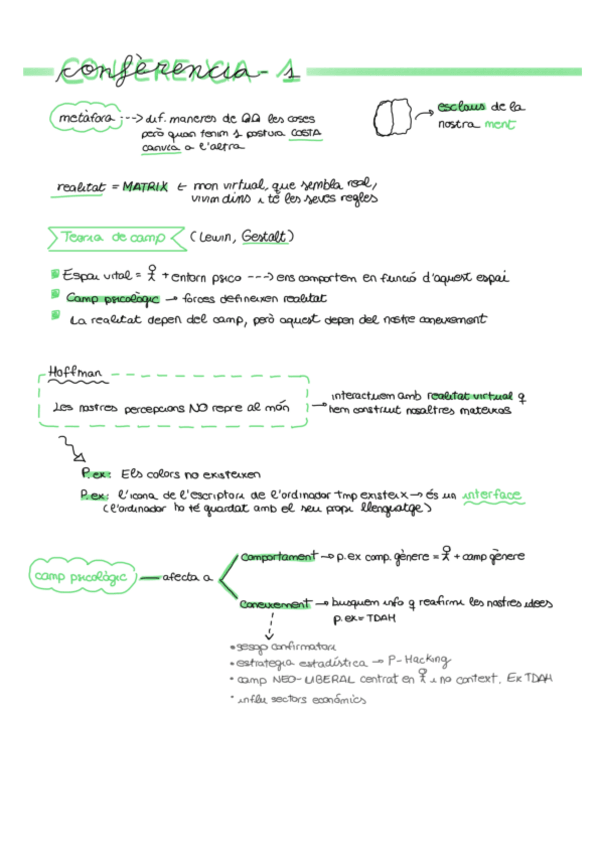 conferència - 1
metàfora ---> dif. maneres de QQ les coses
però quan tenim 1 postura COSTA
canvia a l'altra
esclaus de la
nostra ment
realitat = MATRIX ← mon virtual, que sembla real,
vivim dins i té les seves regles
Teoria de camp (Lewin, Gestalt)
Espai vital = + entorn psico ---> ens comportem en funció d'aquest espai
Camp psicològic → forces defineixen realitat
La realitat depen del camp, però aquest depen del nostre coneixement
Hoffman
Les nostres percepcions NO repre al món
→ interactuem amb realitat virtual q
hem construit nosaltres mateixos
P.ex: Els colors no existeixen
P.ex: l'icona de l'escriptori de l'ordinador tmp existeix → és un interface
(l'ordinador ho té guardat amb el seu propi llenguatge)
camp psicològic — afecta a
Comportament → p.ex comp. gènere = + camp gènere
Coneixement → busquem info q reafirmi les nostres idees
p.ex = TDAH
• sesgo confirmatori
• estrategia estadística → P-Hacking
• camp NEO-LIBERAL centrat en i no context. Ex TDAH
• influ sectors econòmics